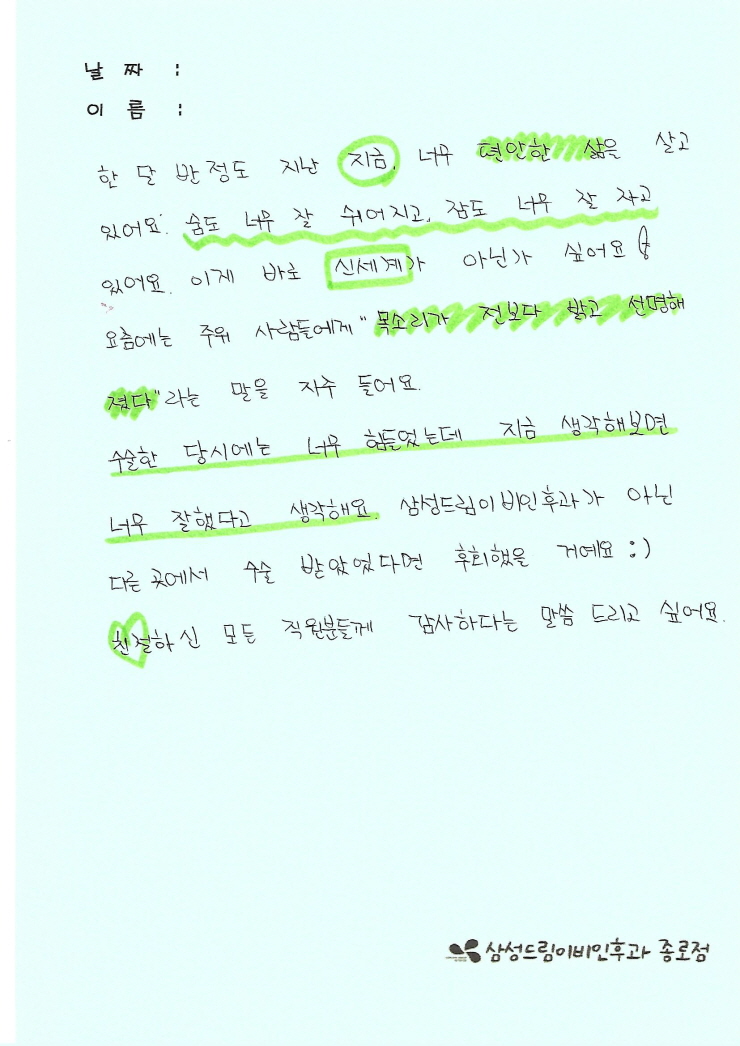 날 짜 :
이 름 :
한 달 반 정도 지난 지금, 너무 편안한 삶을 살고
있어요. 숨도 너무 잘 쉬어지고, 잠도 너무 잘 자고
있어요. 이게 바로 신세계가 아닌가 싶어요
요즘에는 주위 사람들에게 "목소리가 전보다 밝고 선명해
졌다"라는 말을 자주 들어요.
수술한 당시에는 너무 힘들었는데 지금 생각해보면
너무 잘했다고 생각해요. 삼성드림이비인후과가 아닌
다른 곳에서 수술 받았었다면 후회했을 거예요 :)
친절하신 모든 직원분들께 감사하다는 말씀 드리고 싶어요.
삼성드림이비인후과 종로점